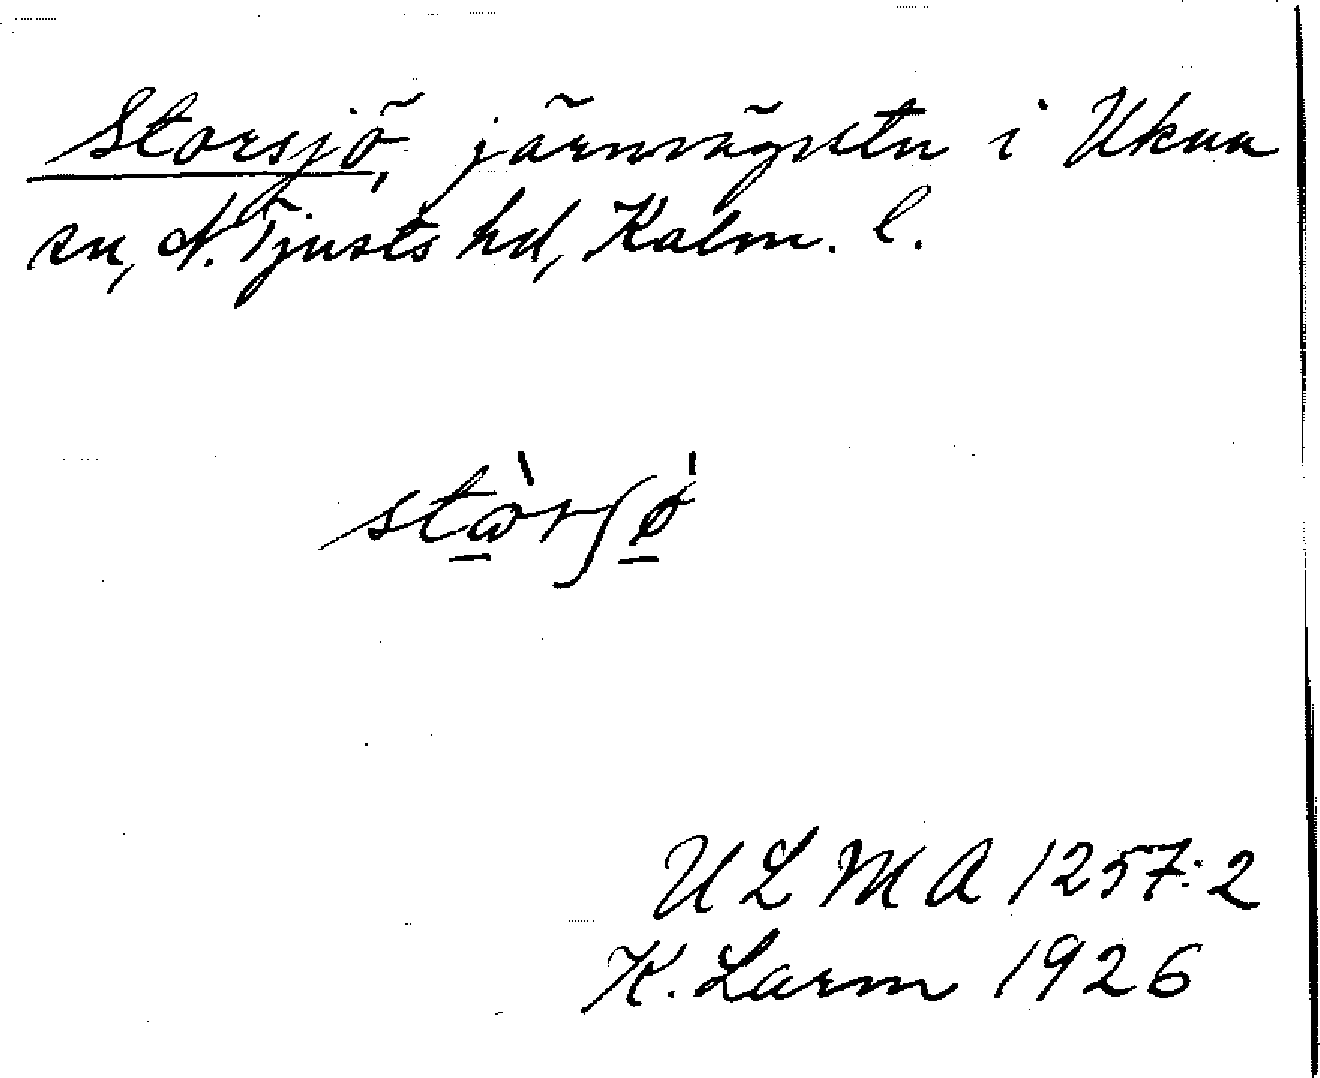 Storsjö, järnvägsstn i Ukna
sn, N. Tjusts hd, Kalm. l.
stὼrʃǿ
ULMA 1257:2
K. Larm 1926